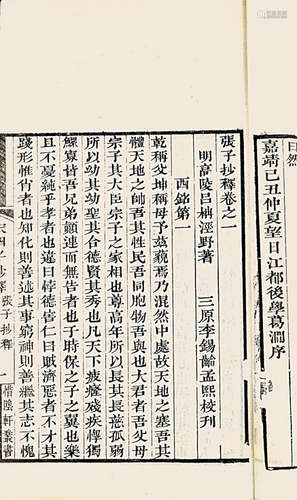 曰然
嘉靖己丑仲夏望日江都後學葛澗序
張子抄釋卷之一
明高陵呂柟涇野著
三原李錫齡孟熙校刊
西銘第一
乾稱父坤稱母予茲藐焉乃混然中處故天地之塞吾其
體天地之帥吾其性民吾同胞物吾與也大君者吾父母
宗子其大臣宗子之家相也尊高年所以長其長慈孤弱
所以幼其幼聖其合德賢其秀也凡天下疲癃殘疾惸獨
鰥寡皆吾兄弟顛連而無告者也于時保之子之翼也樂
且不憂純乎孝者也違曰悖德害仁曰賊濟惡者不才其
踐形惟肖者也知化則善述其事窮神則善繼其志不愧
宋四子抄釋 張子抄釋 一 惜陰軒叢書